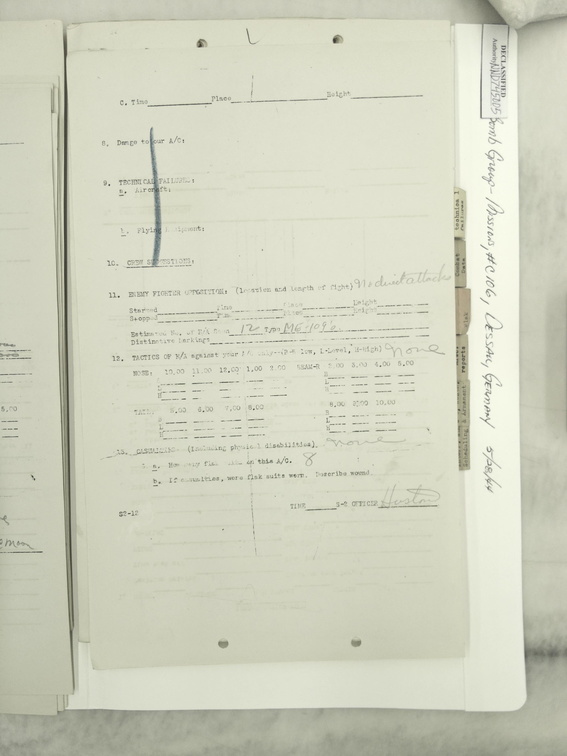 C. Time Place Height
8. Damage to our A/C:
9. TECHNICAL FAILURE:
a. Aircraft:
b. Flying Equipment:
10. CREW SUGGESTIONS:
11. ENEMY FIGHTER OPPOSITION: (location and length of fight) No direct attack
Started Time Place Height
Stopped Time Place Height
Estimated No. of E/A Seen 12 Type ME-109s
Distinctive Markings
12. TACTICS OF E/A against your A/C only--(L= low, L-Level, H-High) None
NOSE: 10.00 11.00 12.00 1.00 2.00 BEAM-R 2.00 3.00 4.00 5.00
TAIL: 5.00 6.00 7.00 8.00 8.00 9.00 10.00
13. CASUALTIES (including physical disabilities) none
a. How many flak on this A/C. 8
b. If casualties, were flak suits worn. Describe wound.
S2-12 TIME S-2 OFFICER Huston
DECLASSIFIED
Authority NND745005
Bomb Group - Mission, #C106, Dessau, Germany 5/28/44
Technical Failures
Combat Data
Flak
reports
5.00